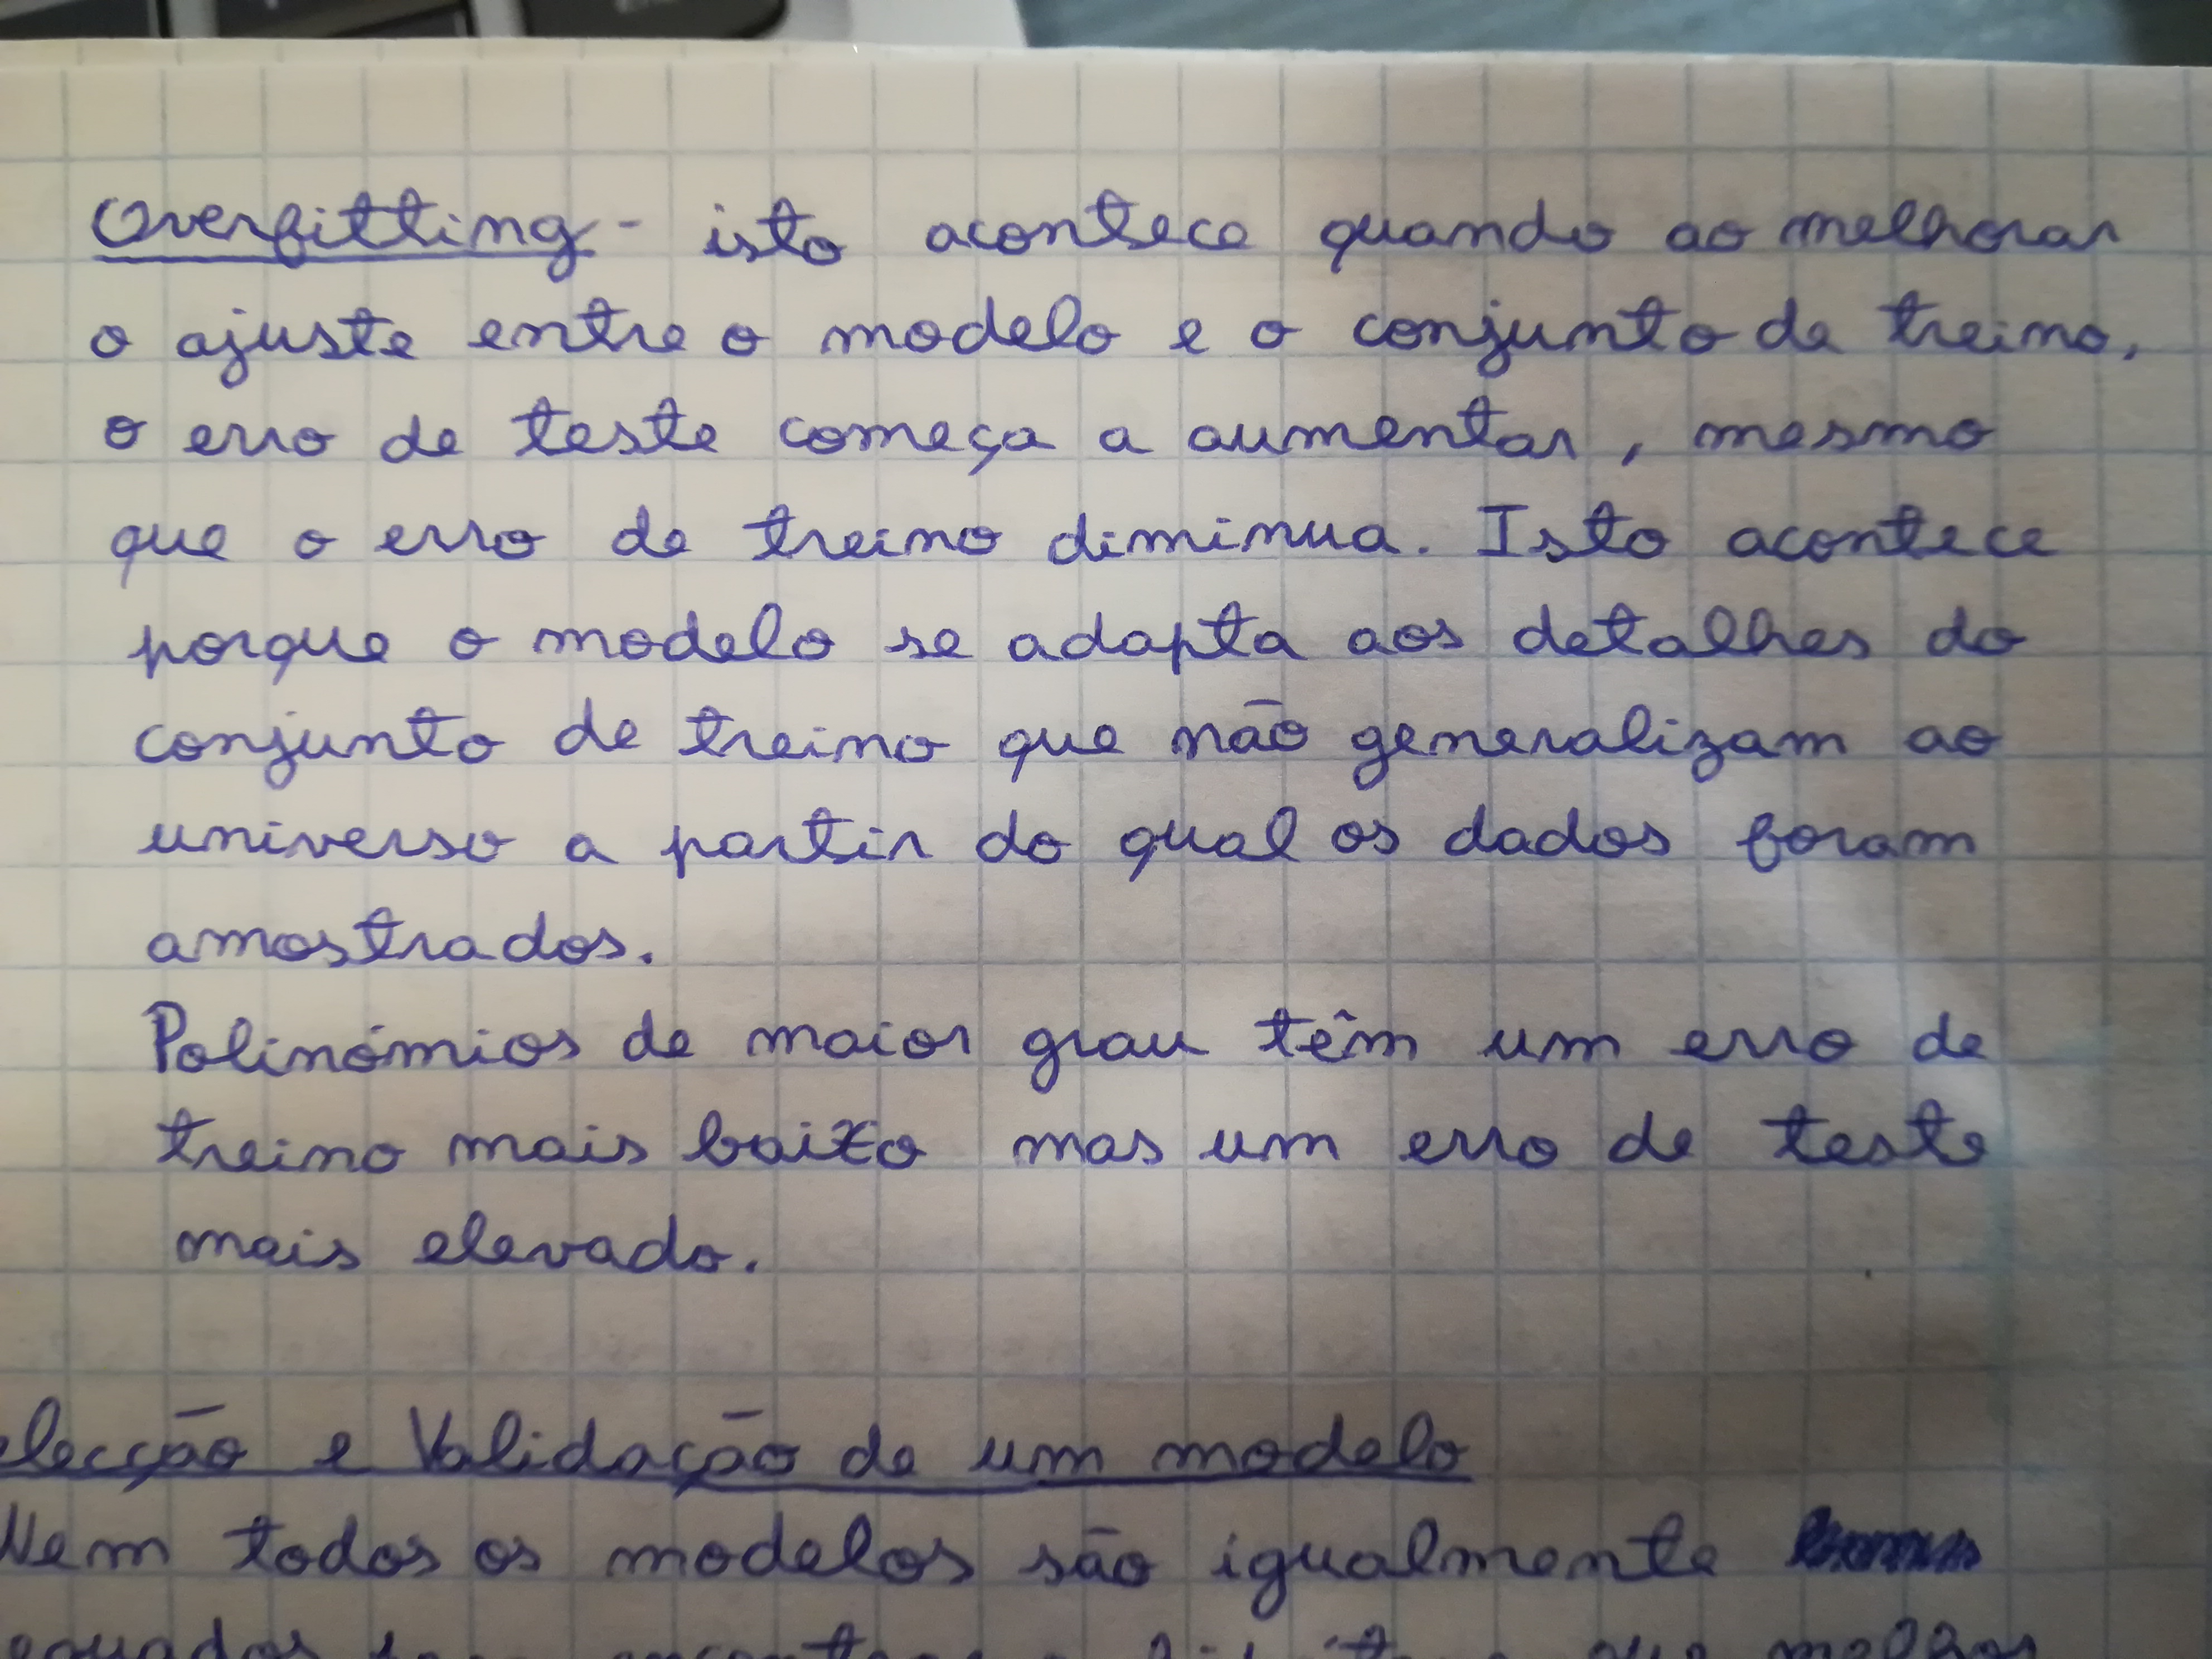 Overfitting - isto acontece quando ao melhorar
o ajuste entre o modelo e o conjunto de treino,
o erro de teste começa a aumentar, mesmo
que o erro de treino diminua. Isto acontece
porque o modelo se adapta aos detalhes do
conjunto de treino que não generalizam ao
universo a partir do qual os dados foram
amostrados.
Polinómios de maior grau têm um erro de
treino mais baixo mas um erro de teste
mais elevado.
elecção e Validação de um modelo
Nem todos os modelos são igualmente
que melhor